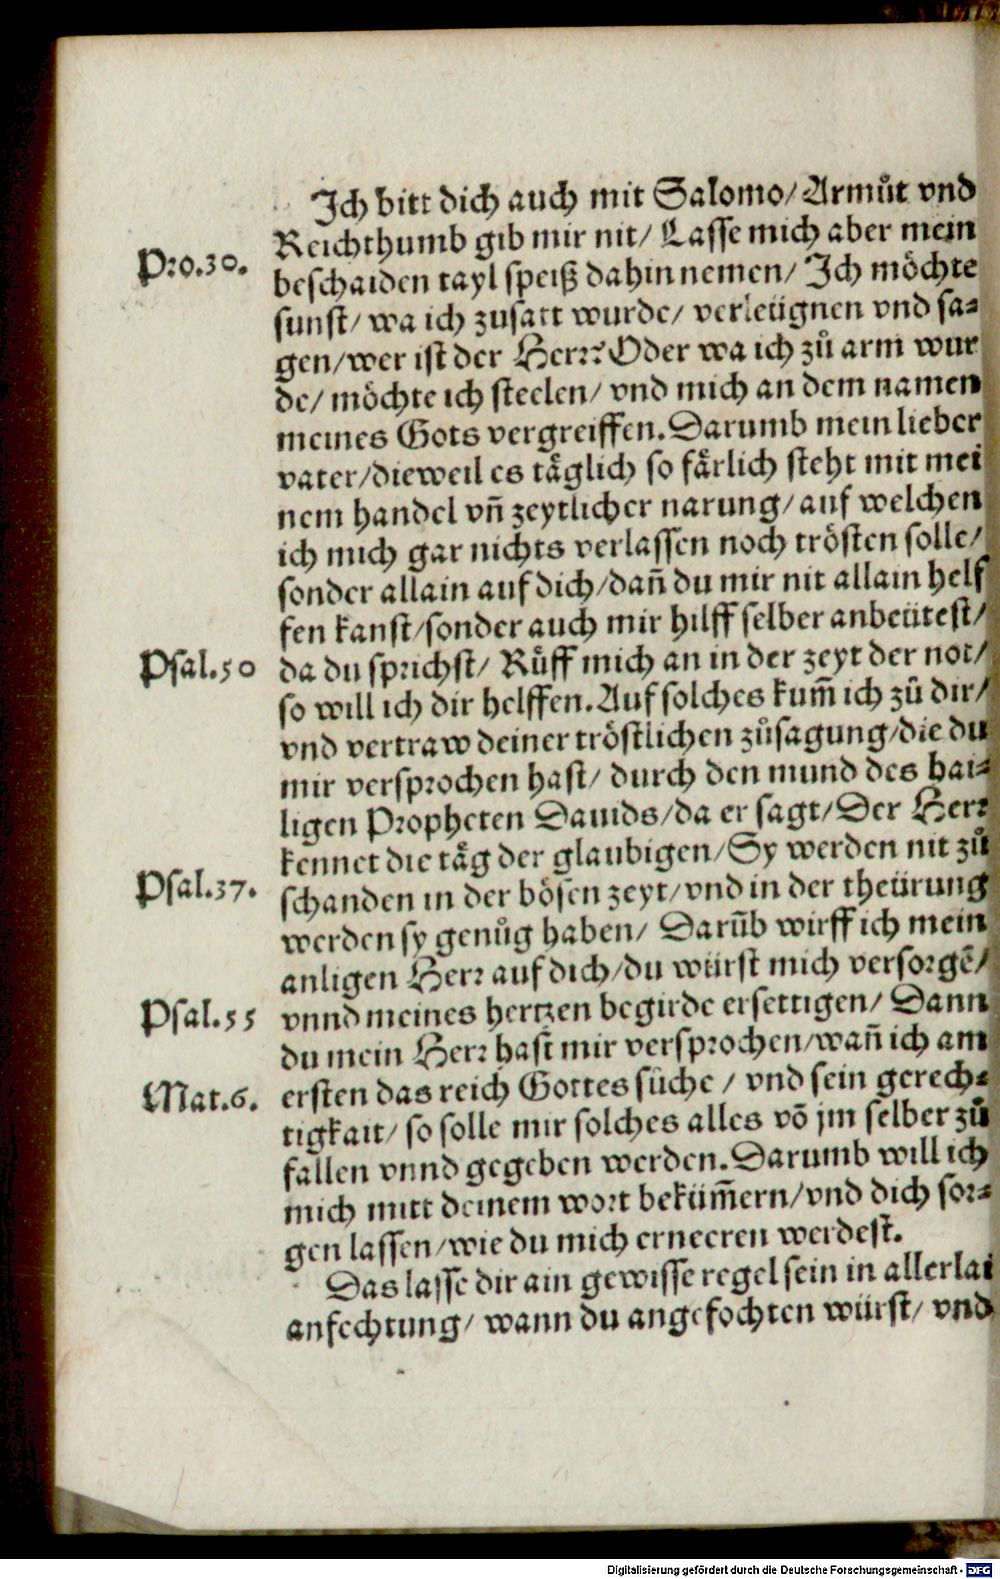 Ich bitt dich auch mit Salomo/ Armůt vnd
Reichthumb gib mir nit/ Lasse mich aber mein
Pro.30.
beschaiden tayl speiß dahin nemen/ Ich möchte
sunst/ wa ich zusatt wurde/ verleügnen vnd sa⸗
gen/ wer ist der Herr? Oder wa ich zů arm wur
de/ möchte ich steelen/ vnd mich an dem namen
meines Gots vergreiffen. Darumb mein lieber
vater/ dieweil es täglich so färlich steht mit mei
nem handel vñ zeytlicher narung/ auf welchen
ich mich gar nichts verlassen noch trösten solle/
sonder allain auf dich/ dañ du mir nit allain helf
fen kanst/ sonder auch mir hilff selber anbeütest/
Psal.50
da du sprichst/ Růff mich an in der zeyt der not/
so will ich dir helffen. Auf solches kum̃ ich zů dir/
vnd vertraw deiner tröstlichen zůsagung/ die du
mir versprochen hast/ durch den mund des hai⸗
ligen Propheten Dauids/ da er sagt/ Der Herr
kennet die täg der glaubigen/ Sy werden nit zů
Psal.37.
schanden in der bösen zeyt/ vnd in der theürung
werden sy genůg haben/ Darũb wirff ich mein
anligen Herr auf dich/ du würst mich versorgẽ/
Psal.55
vnnd meines hertzen begirde ersettigen/ Dann
du mein Herr hast mir versprochen/ wañ ich am
Mat.6.
ersten das reich Gottes süche/ vnd sein gerech⸗
tigkait/ so solle mir solches alles võ jm selber zů
fallen vnnd gegeben werden. Darumb will ich
mich mitt deinem wort beküm̃ern/ vnd dich sor⸗
gen lassen/ wie du mich erneeren werdest.
Das lasse dir ain gewisse regel sein in allerlai
anfechtung/ wann du angefochten würst/ vnd
Digitalisierung gefördert durch die Deutsche Forschungsgemeinschaft - DFG